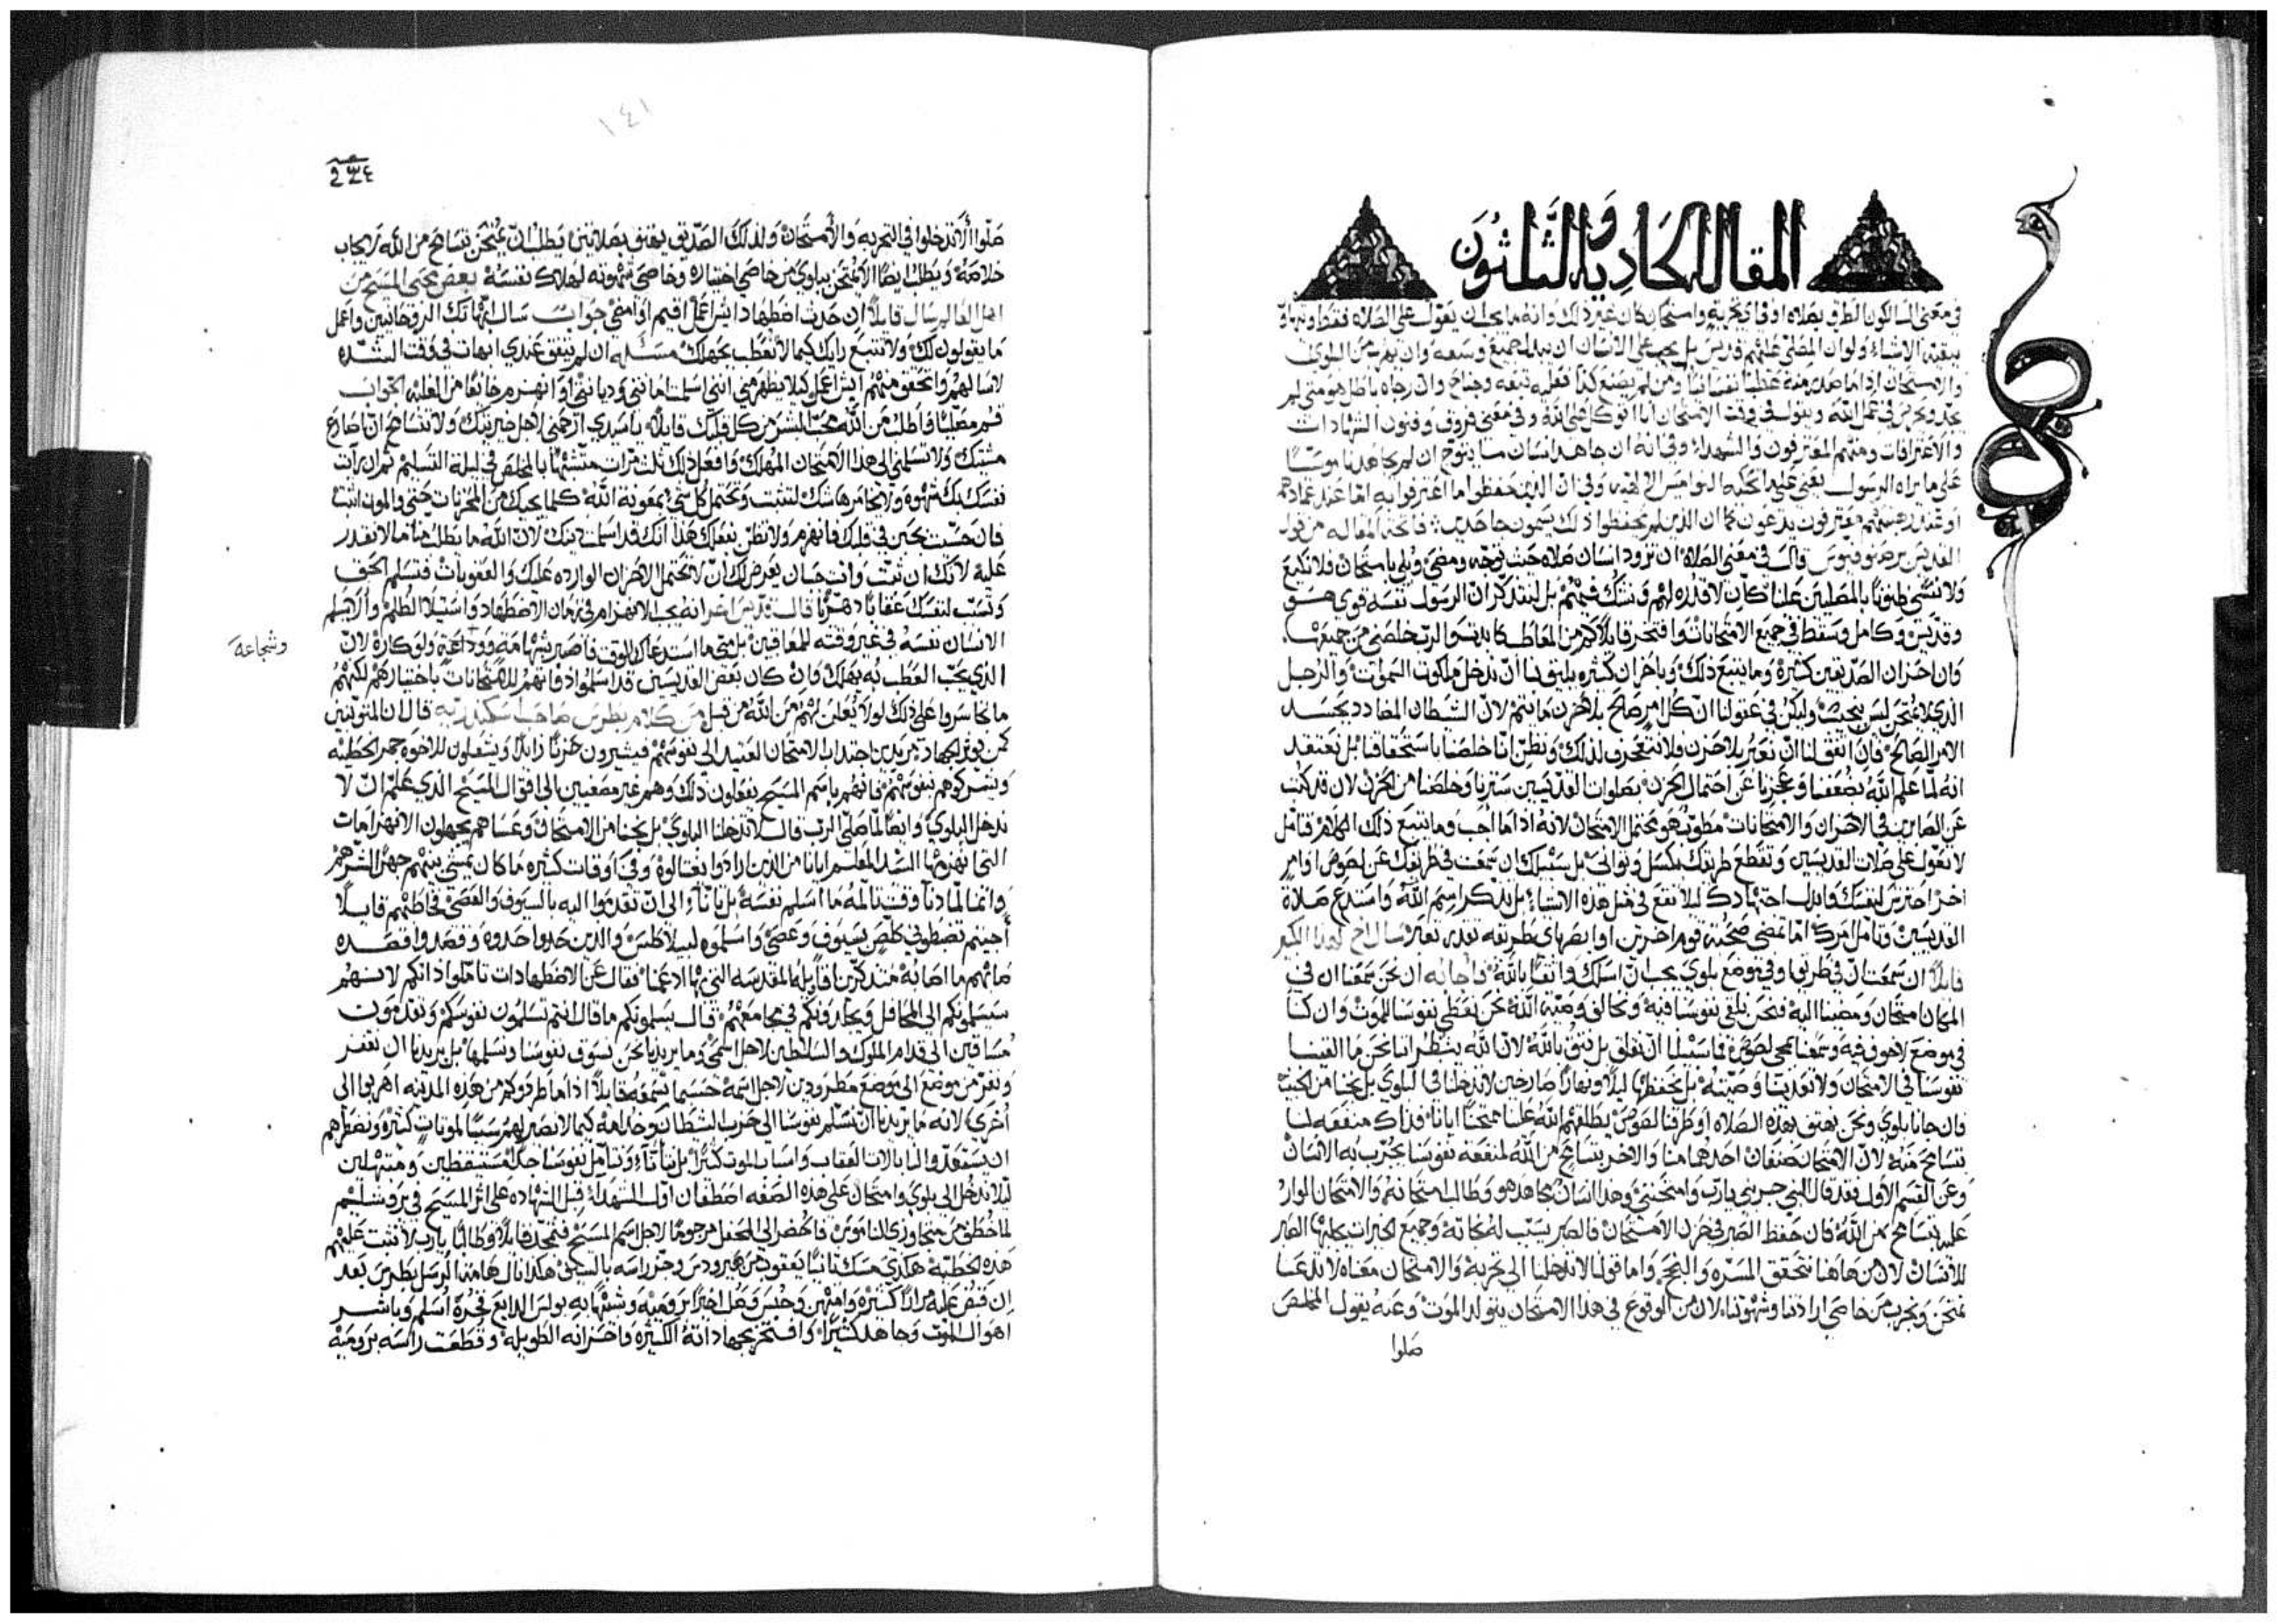 المقاله الحاديه والثلثون
في معنى السالكون الطرق بصلاه او في تجربةٍ وامتحان كان غير ذلك وانه ما يجب ان يعول على الصلاه فقط ويتهاون
ببقية الاشياء ولو ان المصلي عليهم قديس بل يجب على الانسان ان يبذل جميع وسعه وان يهرب من البلوى
والامتحان اذا ما صار منه عطباً نفسانياً ومن لم يصنع كذا فعليه تبعه وجناح وان رجاه باطل هو متى لم
يجدّ ويحرص في عمل الله ويقول في وقت الامتحان انا اتوكل على الله وفي معنى فروق وفنون الشهادات
والاعترافات ومنهم المعترفون والشهداء وفي انه ان جاهد انسان ما يتوج ان لم يجاهد ناموسياً
على ما يراه الرسول يعني على ما تحكيه النواميس الالهيه وفي ان الذين حفظوا ما اعترفوا به اما عند عمادهم
معترفون يدعون كما ان الذين لم يحفظوا ذلك يسمون جاحدين فاتحة المقاله من قول
القديس قال في معنى الصلاة ان تزود انسان صلاه حيث توجه ومضى وبلي بامتحان فلا تكتيب
ولا تسي ظنوناً بالمصليين علينا كان لا قدره لهم وتشك فيهم بل لنتذكر ان الرسول نفسه قوي هو
وقديس وكامل وسقط في جميع الامتحانات وافتخر قايلاً كم من المعاطب كابدتها والرب خلصني من جميعها
وان احزان الصديقين كثيرة وما يتبع ذلك وباحزان كثيره يليق بنا ان ندخل ملكوت السموات والرجل
الذي لا يمتحن ليس بمحبت وليكن في عقولنا ان كل امر صالح بلا حزن ما يتم لان الشيطان المضادد يحسد
الامر الصالح فان اتفق لنا ان نعبر بلا حزن فلا نتعجرف لذلك ونظن انا خلصنا باستحقاقنا بل نعتقد
انه لما علم الله بضعفنا وعجزنا عن احتمال الحزن بصلوات القديسين سترنا وخلصنا من الحزن لان قد كتب
عن الصابرين في الاحزان والامتحانات مطوب هو محتمل الامتحان لانه اذا ما احب وما يتبع ذلك الكلام تامل
لا تعول على صلات القديسين وتقطع طريقك بكسل وتواني بل سبيلك ان سمعت في طريقك عن لصوص او امرٍ
اخر احترس لنفسك وابذل اجتهادك ليلا تقع في مثل هذه الاشيا بل تذكر اسم الله واستدع صلاة
القديسين وتامل امرك اما تمضي صحبة قوم اخرين او ابصر باي طريقه تقدر تعبر سال اخ
قايلاً ان سمعت ان في طريقنا وفي موضع بلوى يجب ان اسلك واثقاً بالله فاجابه ان نحن سمعنا ان في
المكان امتحان ومضينا اليه فنحن نلقي نفوسنا فيه ونخالف وصية الله نحن نعطي نفوسنا للموت وان كنا
في موضع لا خوف فيه وسمعنا بمجي لصوص فما سبيلنا ان نقلق بل نثق بالله لان الله ينظر انا نحن ما القينا
نفوسنا في الامتحان ولا تعدينا وصيته بل نحفظها ليلاً ونهاراً صارخين لا تدخلنا في البلوى بل نجنا من الخبيث
فان جانا بلوى ونحن نهتف بهذه الصلاه او طرقنا لصوص بطلقهم الله علينا ممتحناً ايانا فذاك منفعه لنا
بتسامح منه لان الامتحان صنفان احدهما هنا والاخر بتسامح من الله لمنفعة نفوسنا يجرب به الانسان
وعن القسم الاول فقد قال النبي جربني يارب وامتحنني وهذا انسان مجاهد هو وطالب امتحانٍ ثم والامتحان الوارد
عليه بتسامح من الله فان حفظ الصبر في حزن الامتحان فالصبر يسبب له مجاناته وجميع الخيرات يكللها الصبر
للانسان لان من هاهنا تتحقق المسره والمحبه واما قولنا لا تدخلنا الى تجربة والامتحان معناه لا تدعنا
نمتحن ونجرب من خاصي ارادتنا وشهوتنا لان من الوقوع في هذا الامتحان يتولد الموت وعنه يقول المخلص
صلوا
١٤١
صلوا ألا تدخلوا في التجربه والامتحان ولذلك الصديق يهتف بصلاتين يطلب ان يمتحن بتسامح من الله
خلاصه ويطلب ايضاً الا يمتحن ببلوى من خاصي اختياره وخاصي شهوته لهلاك نفسه بعض محبي المسيح من
اهل العالم سال قايلاً ان حدث اضطهاد ايش اعمل اقيم او امضي جواب سال ابهاتك الروحانيين واعمل
ما يقولون لك ولا تتبع رايك كيما لا تعطب بجهلك مسئله ان لم يتفق عندي ابهات في وقت الشده
لاسالهم واتحقق منهم ايش اعمل كيلا يظهر مني انني اسلمت امانتي وديانتي او انهزم خائفاً من الغلبه الجواب
قم مصلياً واطلب من الله محب البشر من كل قلبك قايلاً يا سيدي ارحمني لاجل خيريتك ولا تتسامح ان اضارع
مشيتك ولا تسلمني الى هذا الامتحان المهلك وافعل ذلك ثلث مرات متشبهاً بالمخلص في ليلة التسليم ثم ان رايت
نفسك بك شهوه ولا يخامرها شك لتثبت وتحتمل كل شي بمعونة الله كلما يجيك من المحزنات حتى والموت اثبت
فان حسيت بجبن في قلبك فانهزم ولا تظن بفعلك هذا انك قد اسلمت دينك لان الله ما يطلب منا ما لا نقدر
عليه لانك ان ثبت وانت جبان يعرض لك ان لا تحتمل الاحزان الوارده عليك والعقوبات فتسلم الحق
وتسبب لنفسك عقاباً دهرياً قال قديس اخر انه يجب الانهزام في زمان الاضطهاد واستيلا الظلم والا يسلم
الانسان نفسه في غير وقته للمعاقبين بل متى ما استدعاك الوقت فاصبر بشهامة ووداعه ولو كارهً لان
وشجاعه
الذي يحب العطب به يهلك وان كان بعض القديسين قد اسلموا ذواتهم للامتحانات باختيارهم لكنهم
ما تجاسروا على ذلك لولا يعلن لهم من الله من قبل من كلام بطرس صاحب اسكندريه قال ان المتوثبين
كمن يوثر الجهاد يريدون اجتذاب الامتحان العتيد الى نفوسهم فيثيرون حزناً زايلاً ويشعلون للاخوه جمر الخطيه
ويشركوهم بنفوسهم فانهم باسم المسيح يفعلون ذلك وهم غير مصغيين الى اقوال المسيح الذي علم ان لا
ندخل البلوى وايضاً لما صلى الرب قال لا تدخلنا البلوى بل نجنا من الامتحان وعساهم يجهلون الانهزامات
التي انهزمها السيد المعلم ايانا من الذين ارادوا يغتالوه وفي اوقات كثيره ما كان يمشي بينهم جهراً لشرهم
وانما لما دنا وقت تالمه ما اسلم نفسه بل تاناء الى ان تقدموا اليه بالسيوف والعصي فخاطبهم قايلاً
أجيتم تضبطوني كلص بسيوف وعصي واسلموه لبيلاطس والذين حذوا حذوه وقصدوا قصده
صابهم ما اصابه متذكرين اقاويله المقدسه التي بها ادعمنا فقال عن الاضطهادات تاملوا ذاتكم لانهم
سيسلمونكم الى المحافل ويجلدونكم في مجامعهم قال يسلمونكم ما قال انتم تسلمون نفوسكم وتقدمون
مساقين الى قدام الملوك والسلاطين لاجل اسمي وما يريدنا نحن نسوق نفوسنا ونسلمها بل يريدنا ان نعبر
ونفر من موضع الى موضع مطرودين لاجل اسمه حسبما نسمعه قايلاً اذا ما طردوكم من هذه المدينه اهربوا الى
أخرى لانه ما يريدنا ان نسلم نفوسنا الى حزب الشيطان وخدامه كيما لا نصير لهم سبباً لموتات كثيره ونضطرهم
ان يستعدوا لنا بالات العقاب واسباب الموت كثيراً بل نتاناء ونتامل نفوسنا جداً مستيقظين ومبتهلين
ليلا ندخل الى بلوى وامتحان على هذه الصفه اصطفان اول الشهداء قبل الشهاده على اثر المسيح في يروشليم
لما خطف من متجاوزي الناموس فاحضر الى المحفل مرجوماً لاجل اسم المسيح فتمجد قايلاً وطالباً يارب لا تثبت عليهم
هذه الخطيه هكذى مسك ثانياً يعقوب من هيرودس وحز راسه بالسيف هكذا نال هامة الرسل بطرس بعد
ان قبض عليه مراراً كثيره وامتهن وحبس وصلب اخيراً برومية وشبيهاً به بولس الذايع فخره أسلم وباشر
اهوال الموت وجاهد كثيراً وافتخر بجهاداته الكثيره واحزانه الطويله وقطعت راسه برومية